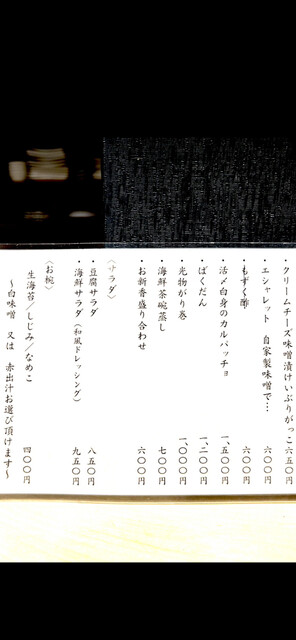 ・クリームチーズ味噌漬けいぶりがっこ 六五〇円
・エシャレット 自家製味噌で… 六〇〇円
・もずく酢 六〇〇円
・活〆白身のカルパッチョ 一、五〇〇円
・ばくだん 一、二〇〇円
・光物がり巻 一、〇〇〇円
・海鮮茶碗蒸し 七〇〇円
・お新香盛り合わせ 六〇〇円
〈サラダ〉
・豆腐サラダ 八五〇円
・海鮮サラダ(和風ドレッシング) 九五〇円
〈お椀〉
生海苔／しじみ／なめこ 四〇〇円
～白味噌 又は 赤出汁お選び頂けます～